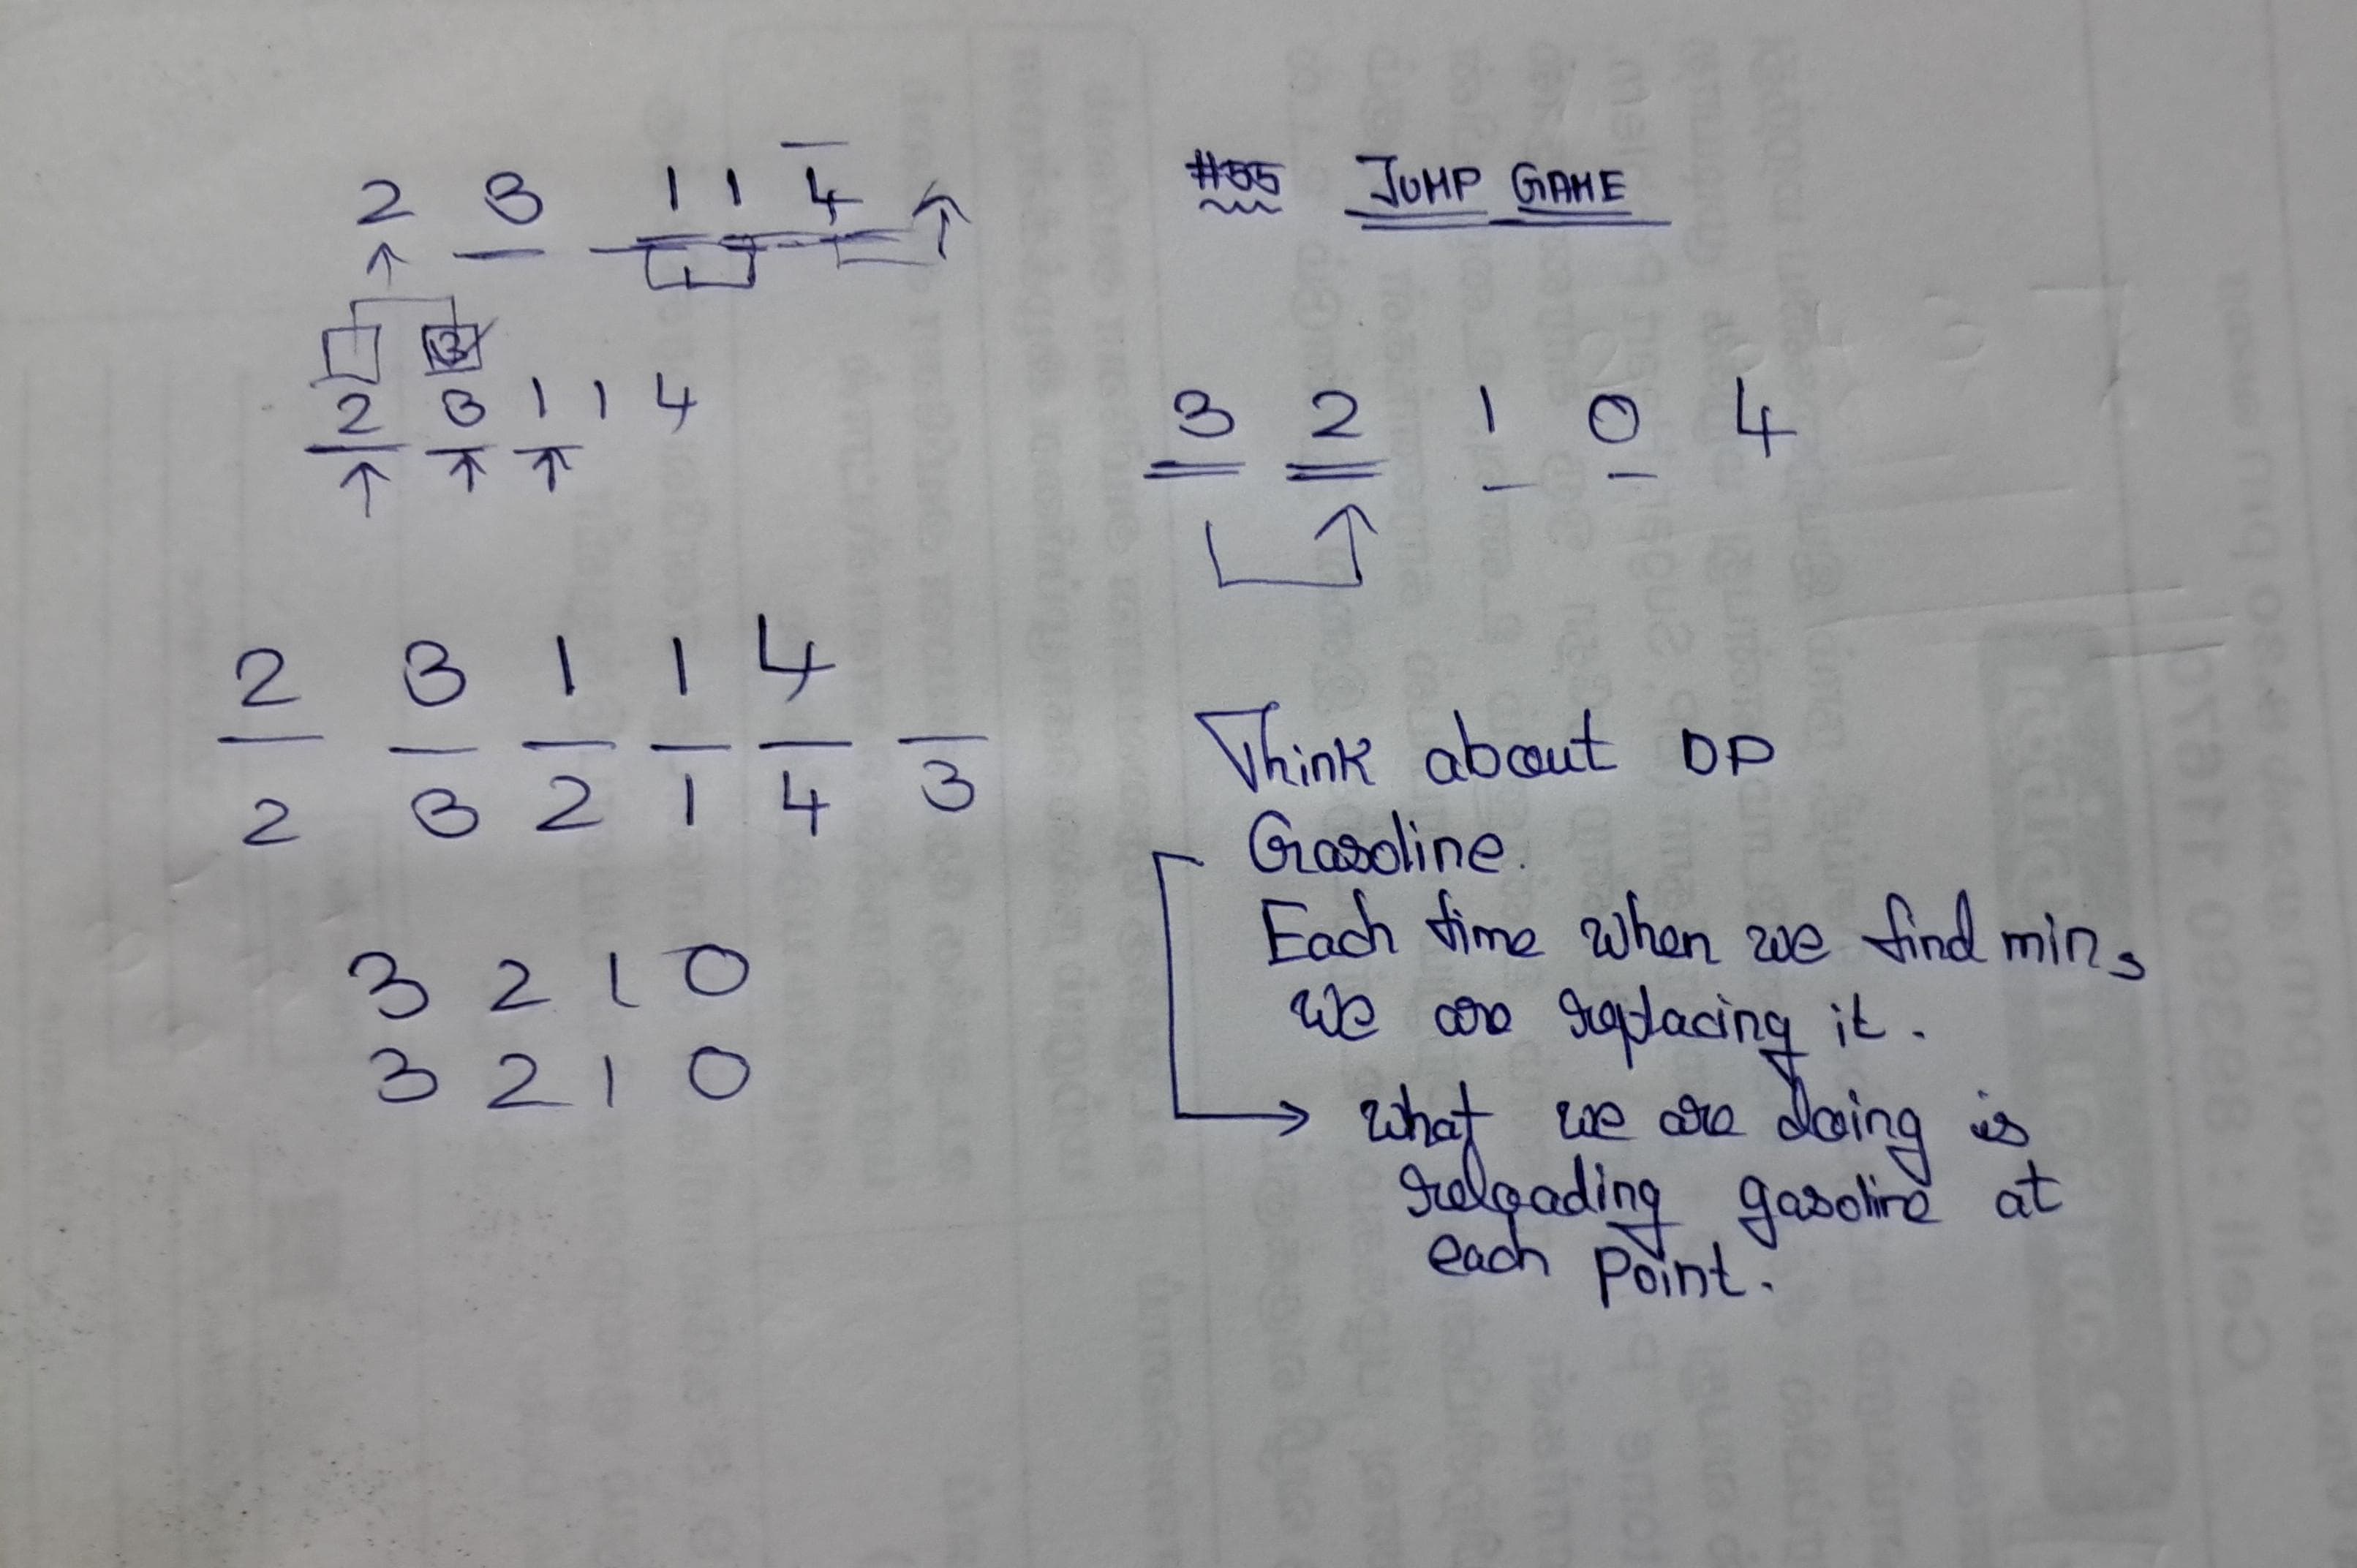 2 3 1 1 4
3
2 3 1 1 4
2 3 1 1 4
2 3 2 1 4 3
3 2 1 0
3 2 1 0
#55 JUMP GAME
3 2 1 0 4
Think about DP
Gasoline.
Each time when we find min,
we are replacing it.
what we are doing is
reloading gasoline at
each point.